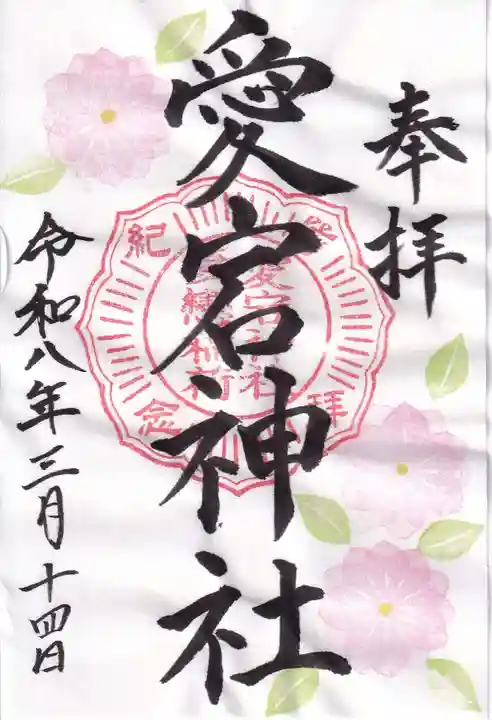 奉拝
愛宕神社
令和八年三月十四日
参拝
紀念
愛宕神社